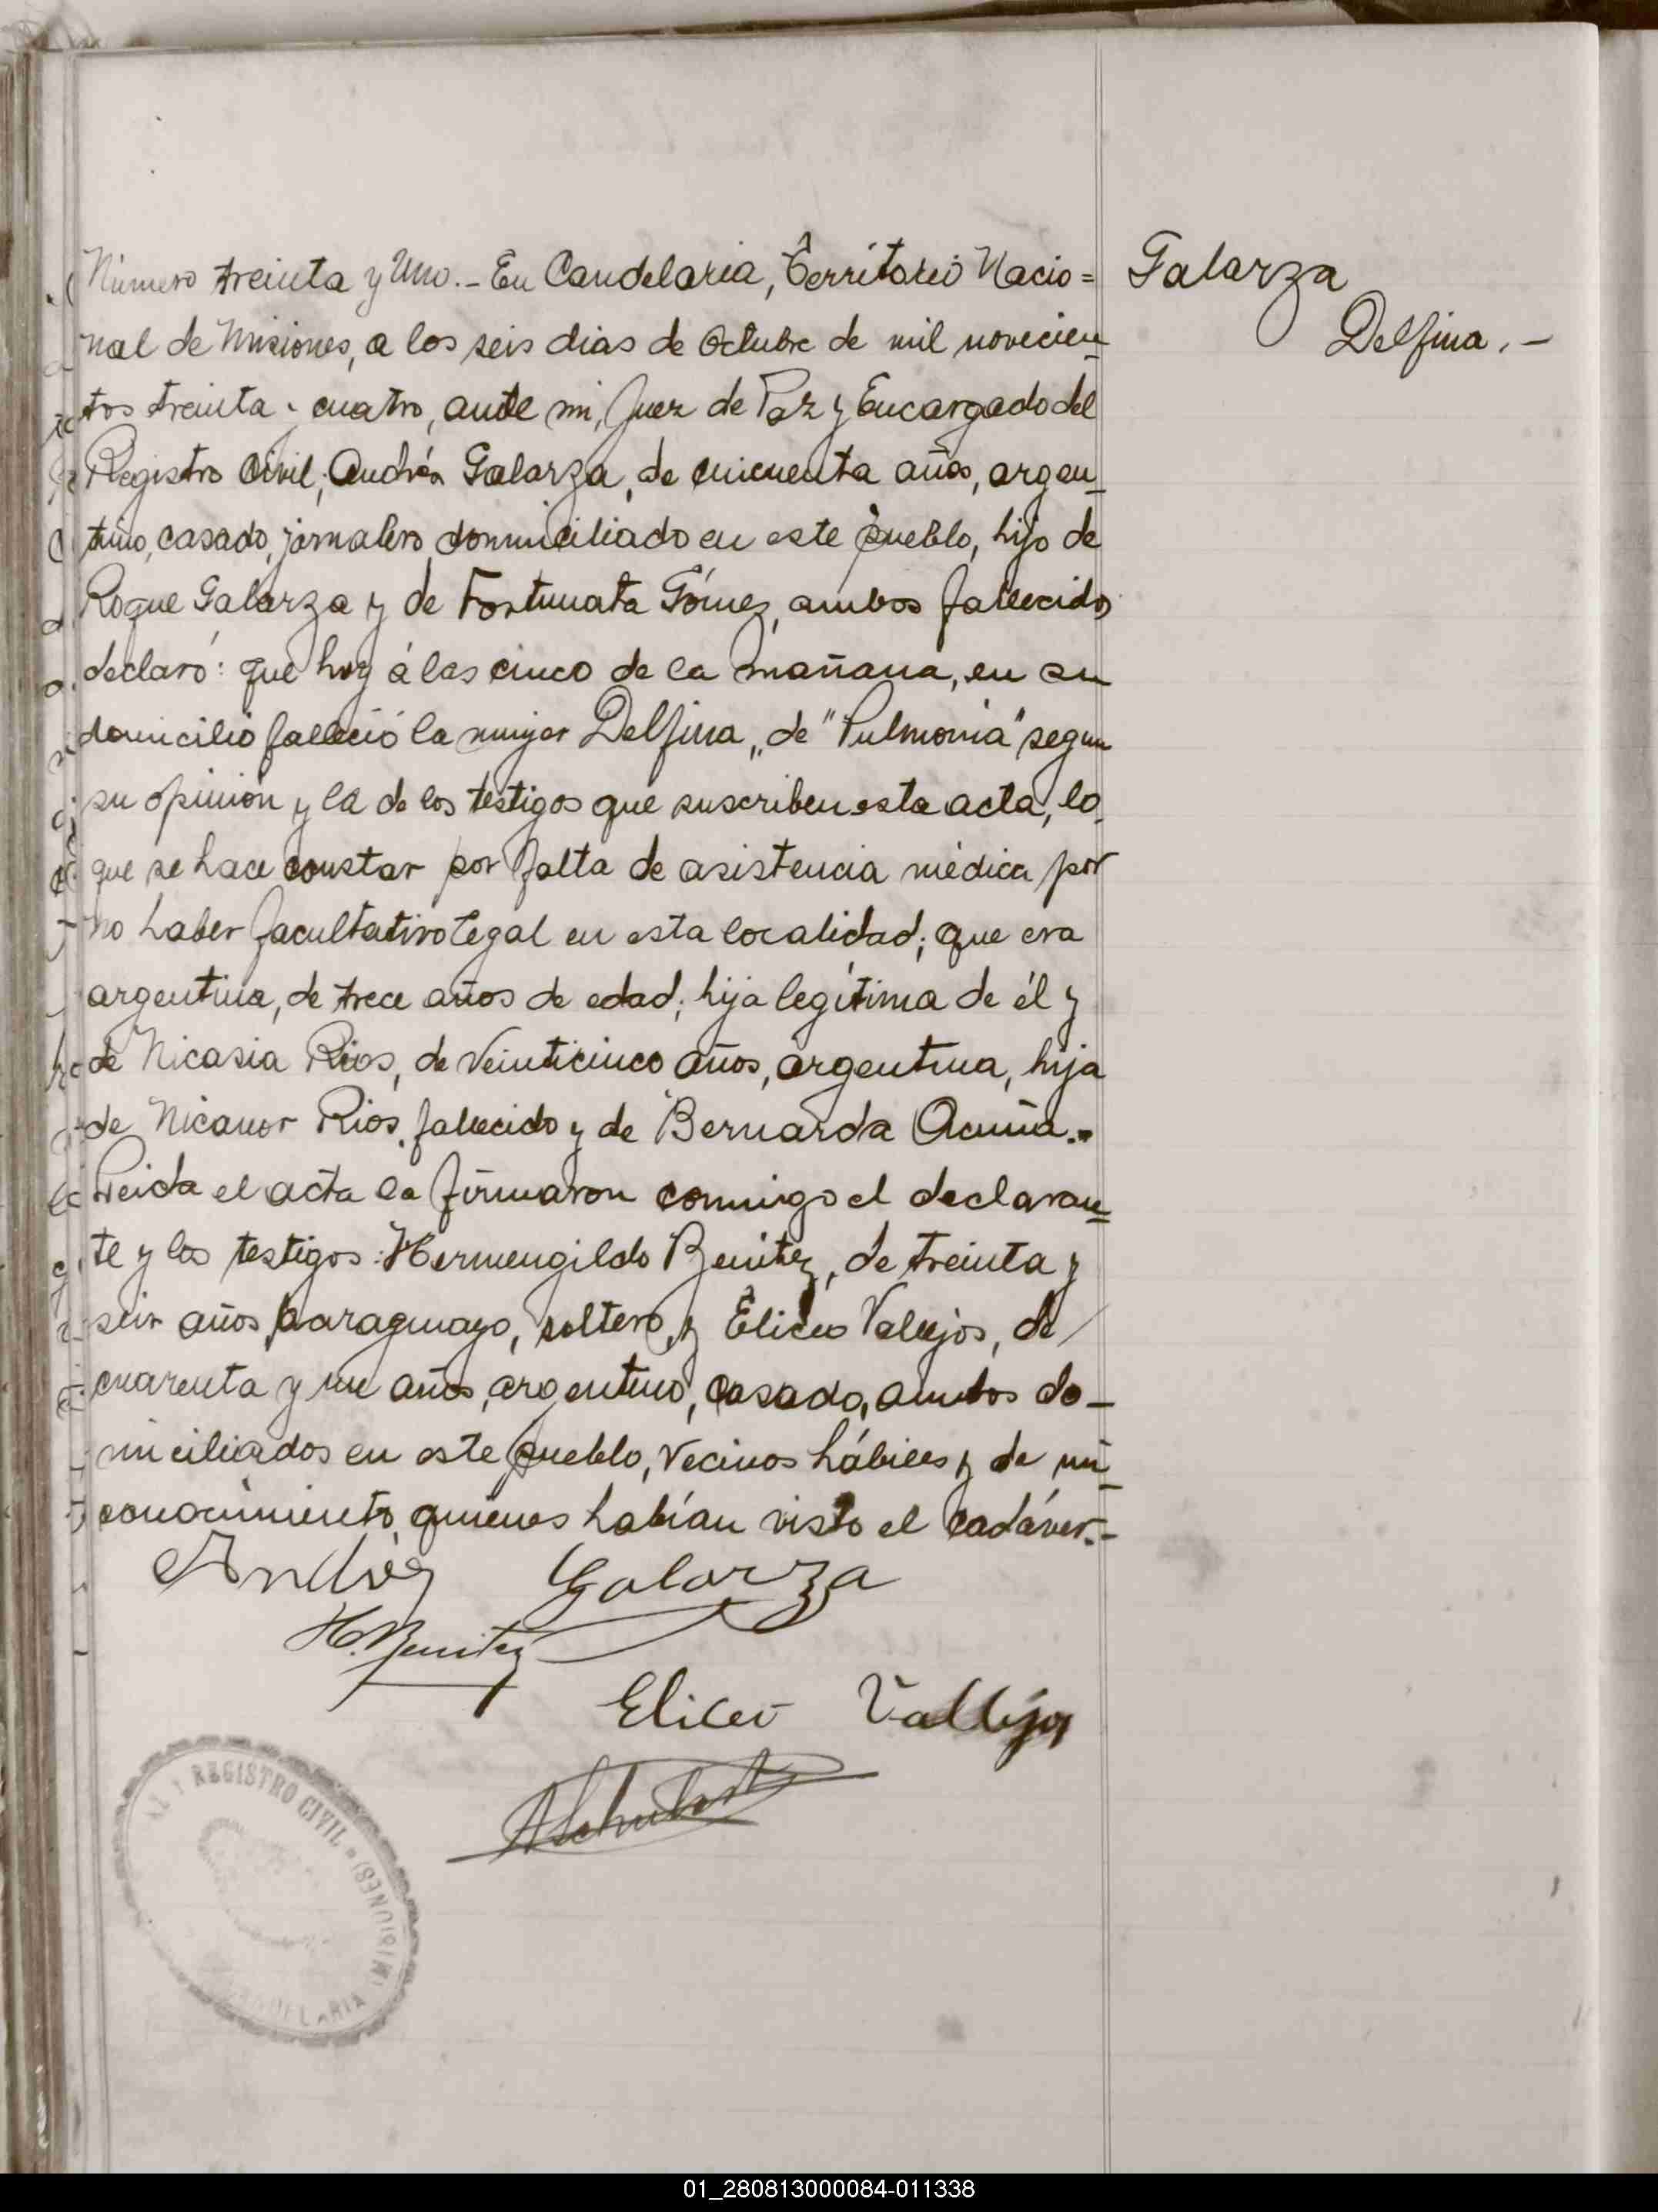 Número treinta y Uno.- En Candelaria, Território Nacio=
nal de Misiones, a los seis dias de Octubre de mil novecien
tos treinta y cuatro, ante mi, Juez de Paz y Encargado del
Registro Civil; Andrés Galarza, de cincuenta años, argen_
tino, casado, jornalero domiciliado en este pueblo, hijo de
Roque Galarza y de Fortunata Gómez, ambos fallecidos
declaró: que hoy á las cinco de la mañana, en su
domicilio falleció la mujer Delfina „ de "Pulmonia" segun
su opinión y la de los testigos que suscriben esta acta, lo
que se hace constar por falta de asistencia médica por
no haber facultativo legal en esta localidad; que era
argentina, de trece años de edad; hija legítima de él y
de Nicasia Rios, de Veinticinco años, argentina, hija
de Nicanor Rios, fallecido y de Bernarda Acuña.-
Leida el acta la firmaron conmigo el declaran=
te y los testigos: Hermengildo Benitez, de treinta y
seis años, paraguayo, soltero, y Eliceo Vallejos, de
cuarenta y un años, argentino, casado, ambos do-
miciliados en este pueblo, Vecinos hábiles y de mi
conocimiento, quienes habían visto el cadáver.-
Andrés Galarza
H. Benitez
Eliceo Vallejos
REGISTRO CIVIL
(MISIONES)
CANDELARIA
Galarza
Delfina.-
01_280813000084-011338